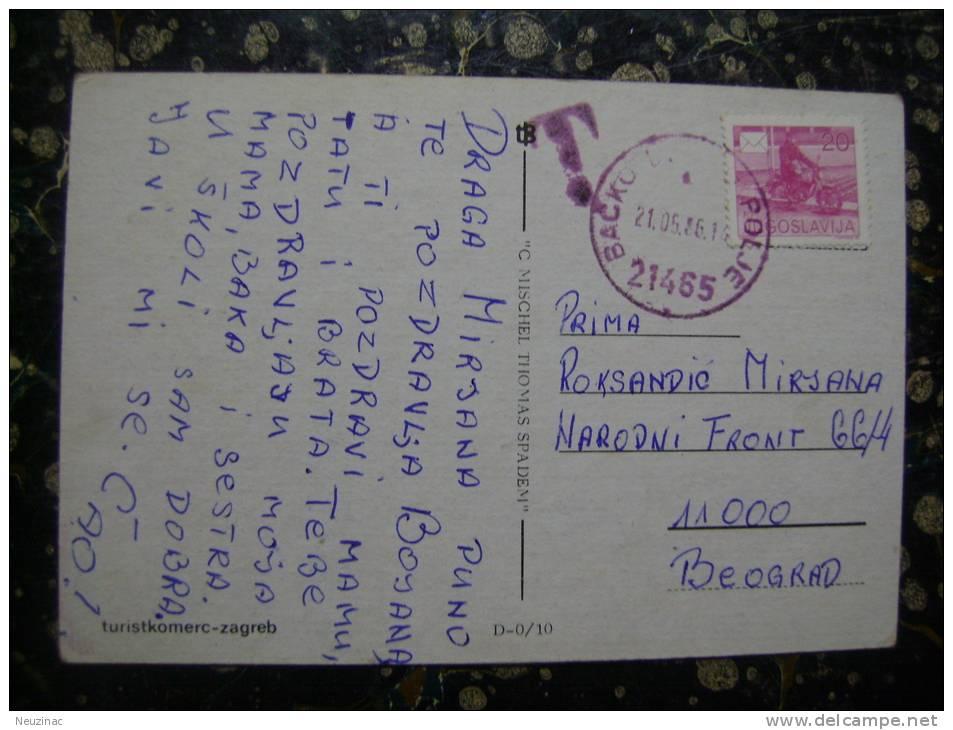 DRAGA MIRJANA PUNO
TE POZDRAVLJA BOJANA,
A TI POZDRAVI MAMU,
TATU I BRATA. TEBE
POZDRAVLJAJU MOJA
MAMA, BAKA I SESTRA.
U ŠKOLI SAM DOBRA.
JAVI MI SE.
turistkomerc-zagreb
"C MISCHEL THOMAS SPADEM"
D-0/10
T.
BAČKO POLJE
21465
20
JUGOSLAVIJA
PRIMA
ROKSANDIĆ MIRJANA
NARODNI FRONT 66/4
11000
BEOGRAD
Neuzinac
www.delcampe.net